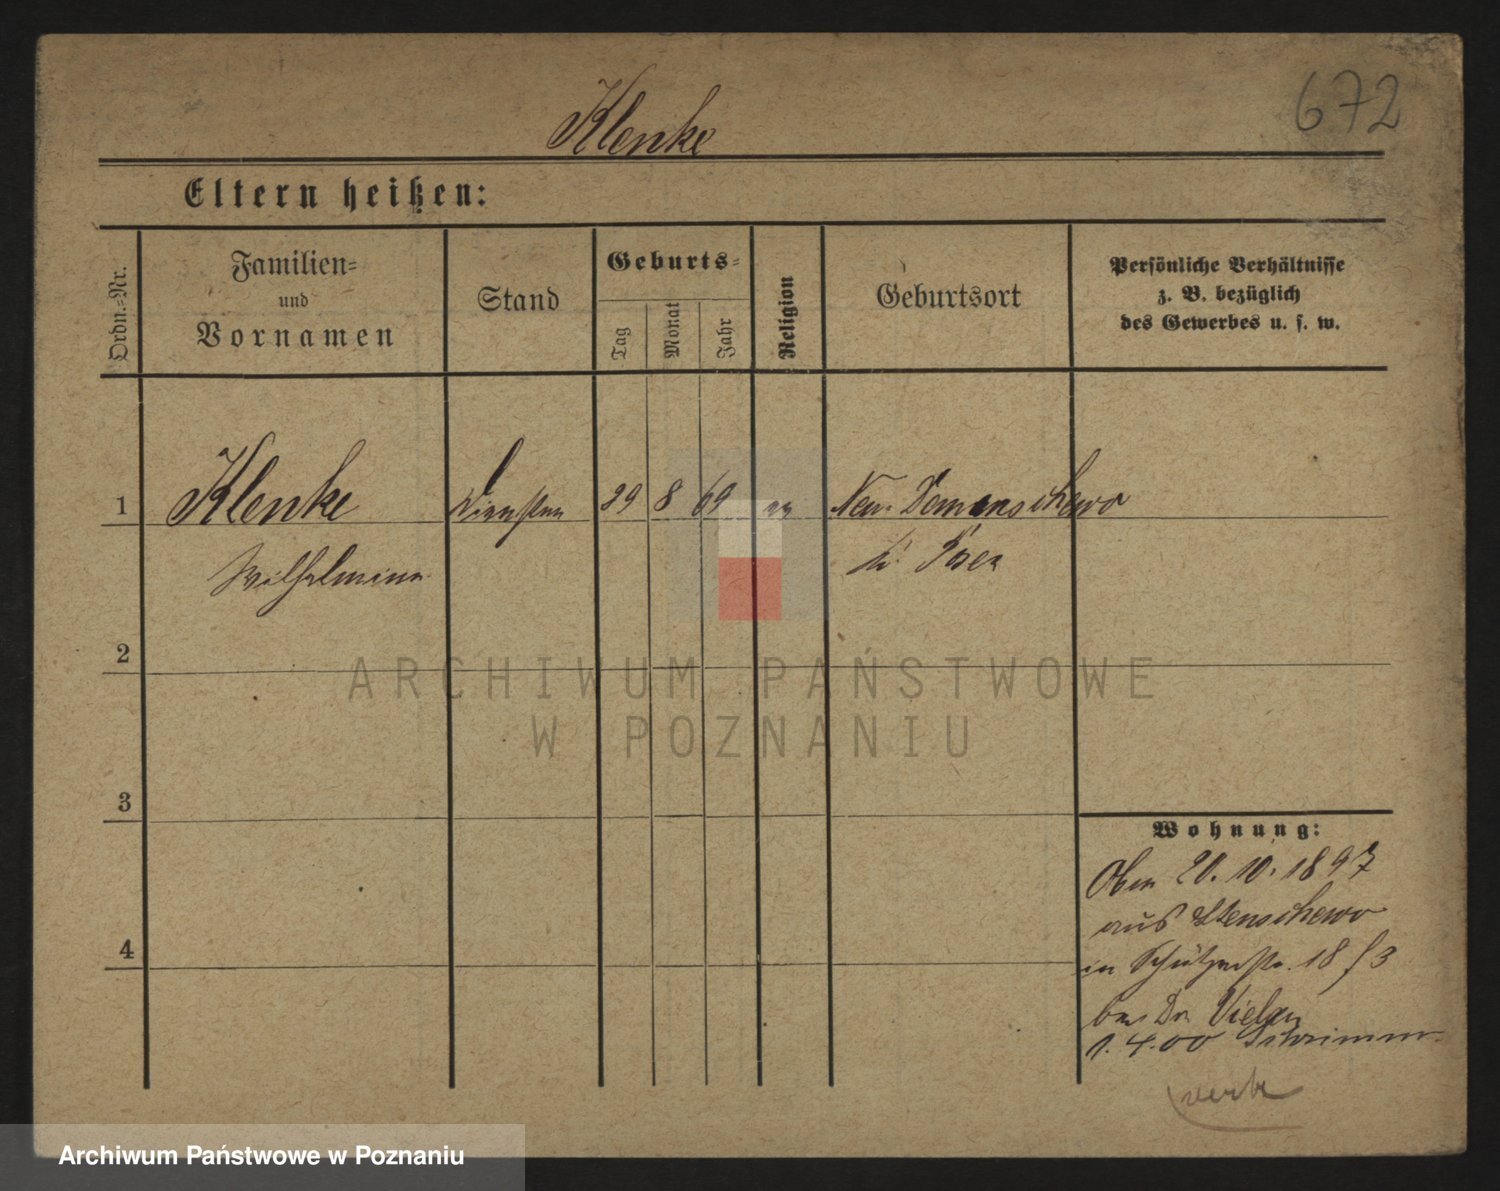 672
Klenke
Eltern heißen:
Ordn.=Nr.
Familien=
und
Vornamen
Stand
Geburts=
Tag
Monat
Jahr
Religion
Geburtsort
Persönliche Verhältnisse
z. B. bezüglich
des Gewerbes u. s. w.
1
Klenke 29 8 69 ev Neu Demanschewo
Wilhelmine Posen
2
ARCHIWUM PAŃSTWOWE
W POZNANIU
3
Wohnung:
20. 10. 1897
aus Stenschewo
in Schützenstr. 18
4
bei Dr.
1. 4. 00 Schrimm
Archiwum Państwowe w Poznaniu